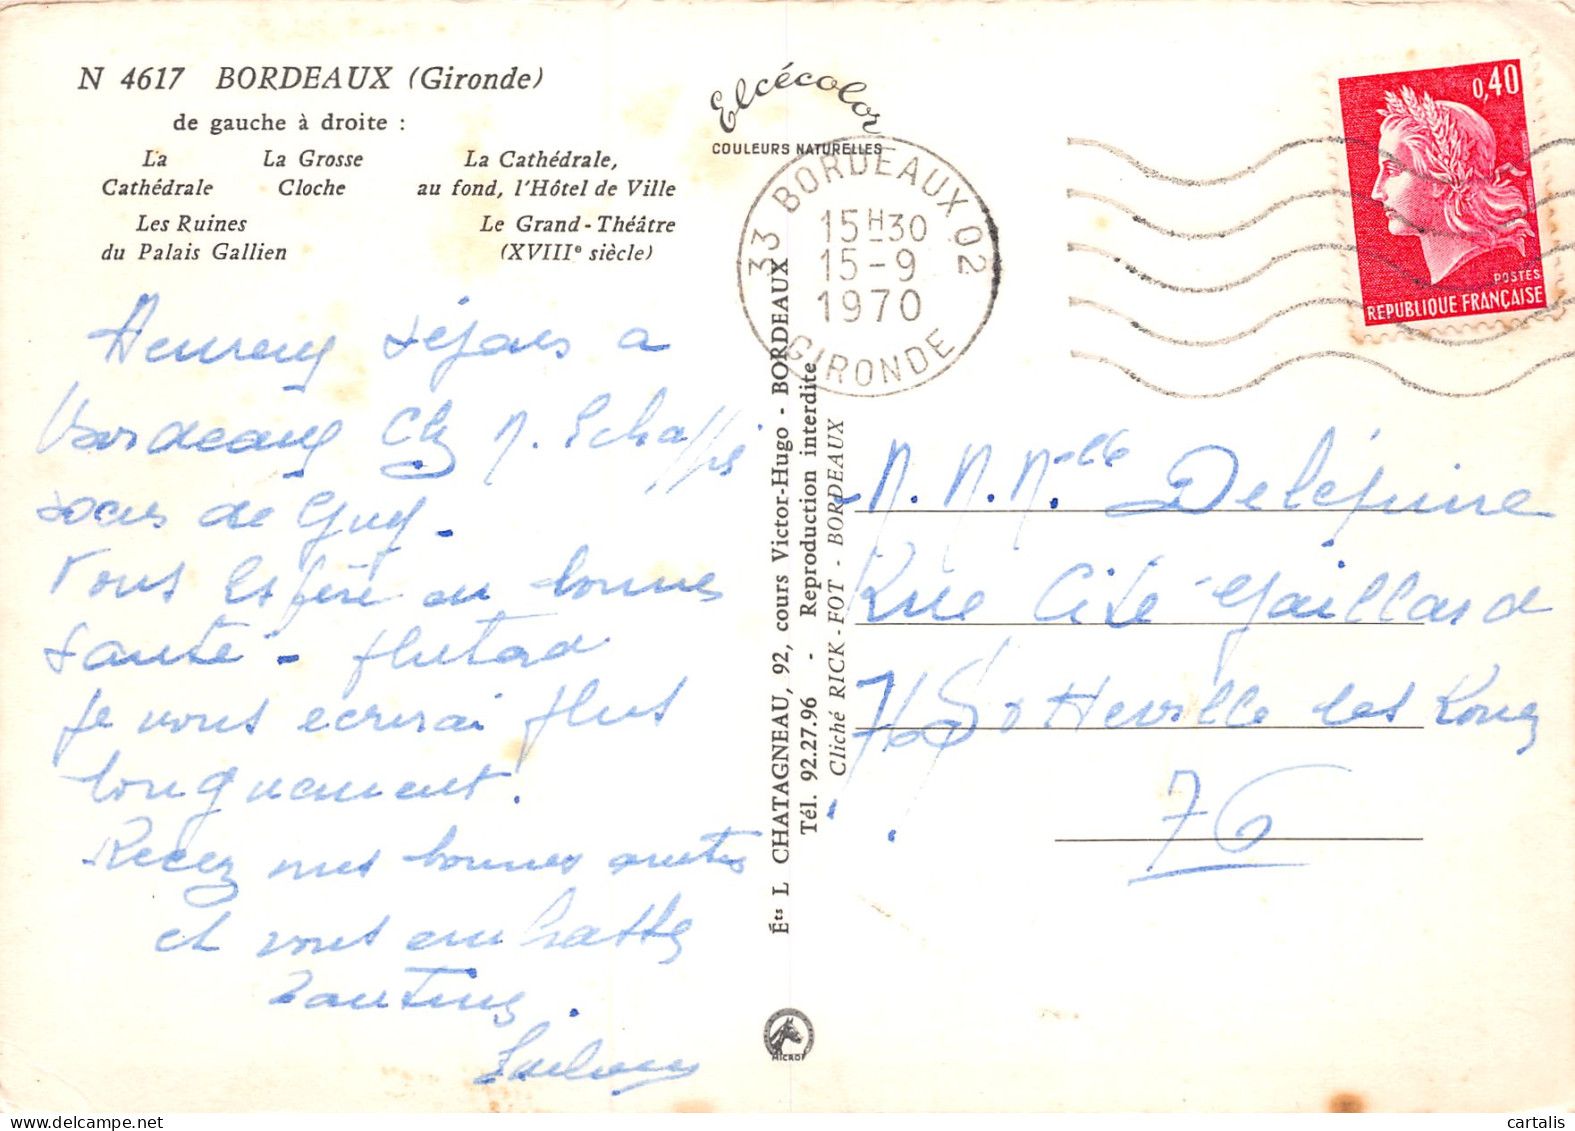 N 4617 BORDEAUX (Gironde)
de gauche à droite :
La Cathédrale
La Grosse Cloche
La Cathédrale,
au fond, l'Hôtel de Ville
Les Ruines
du Palais Gallien
Le Grand-Théâtre
(XVIIIe siècle)
Elcécolor
COULEURS NATURELLES
33 BORDEAUX 02
15H30
15-9
1970
GIRONDE
0,40
POSTES
REPUBLIQUE FRANÇAISE
Heureux séjours a
Bordeaux M.
de Guy -
Vous espère en bonne
santé - plutard
je vous ecrirai plus
longuement.
Recez mes bonnes
et vous
Éts L CHATAGNEAU, 92, cours Victor-Hugo - BORDEAUX
Tél. 92.27.96 - Reproduction interdite
Cliché RICK-FOT - BORDEAUX
M. M. Melle Delépine
Rue Cité Gaillard
76 Sotteville les Rouen
76
MICRO
cartalis